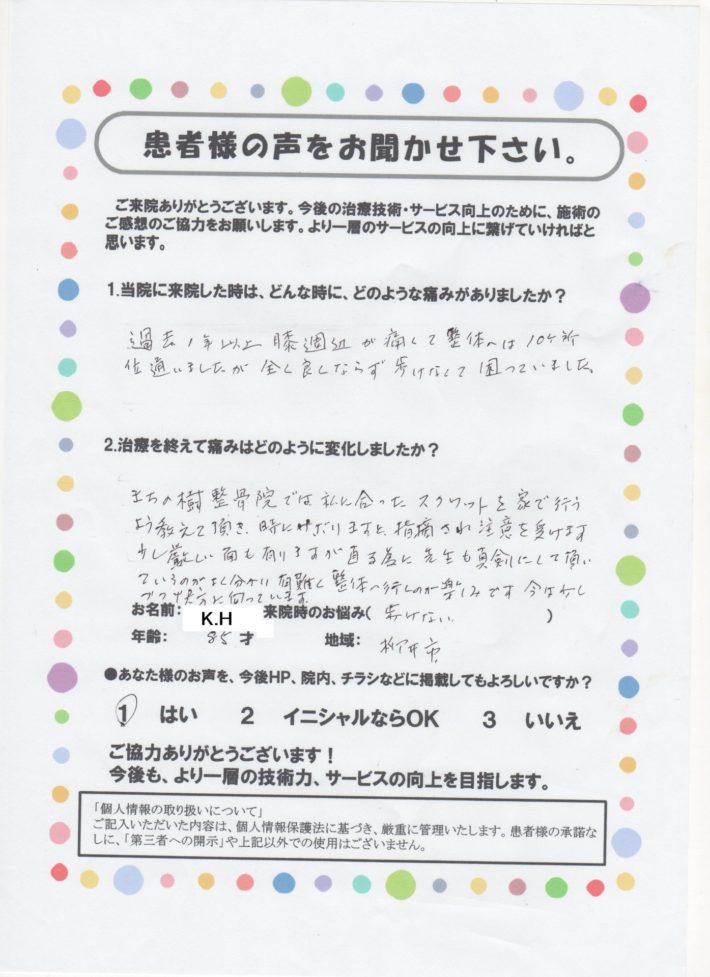 患者様の声をお聞かせ下さい。
ご来院ありがとうございます。今後の治療技術・サービス向上のために、施術の
ご感想のご協力をお願いします。より一層のサービスの向上に繋げていければと
思います。
1.当院に来院した時は、どんな時に、どのような痛みがありましたか？
過去1年以上 膝週辺が痛くて整体へは10ケ所
位通いましたが 全く良くならず 歩けなくて 困っていました。
2.治療を終えて痛みはどのように変化しましたか？
まちの樹整骨院では私に合ったスクワットを家で行う
よう教えて頂き、時にサボりますと、指摘され注意を受けます
少し厳しい面も有りますが直る為に先生も真剣にして頂い
ているのがよく分かり有難く整体へ行くのが楽しみです 今は少し
づつ快方に向っています。
お名前： K.H 来院時のお悩み( 歩けない )
年齢： 85才 地域： 柳井市
●あなた様のお声を、今後HP、院内、チラシなどに掲載してもよろしいですか？
1 はい 2 イニシャルならOK 3 いいえ
ご協力ありがとうございます！
今後も、より一層の技術力、サービスの向上を目指します。
「個人情報の取り扱いについて」
ご記入いただいた内容は、個人情報保護法に基づき、厳重に管理いたします。患者様の承諾な
しに、「第三者への開示」や上記以外での使用はございません。